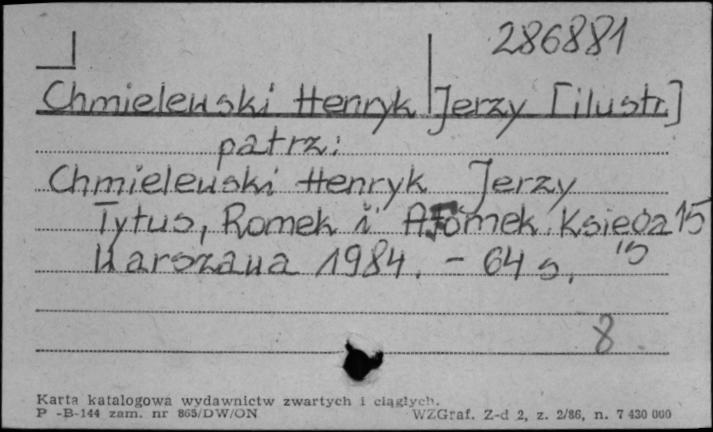 286881
Chmielewski Henryk Jerzy [ilustr.]
patrz:
Chmielewski Henryk Jerzy
Tytus, Romek i A'Tomek. Księga 15
Warszawa 1984. - 64 s.
8
Karta katalogowa wydawnictw zwartych i ciągłych.
P -B-144 zam. nr 865/DW/ON WZGraf. Z-d 2, z. 2/86, n. 7 430 000